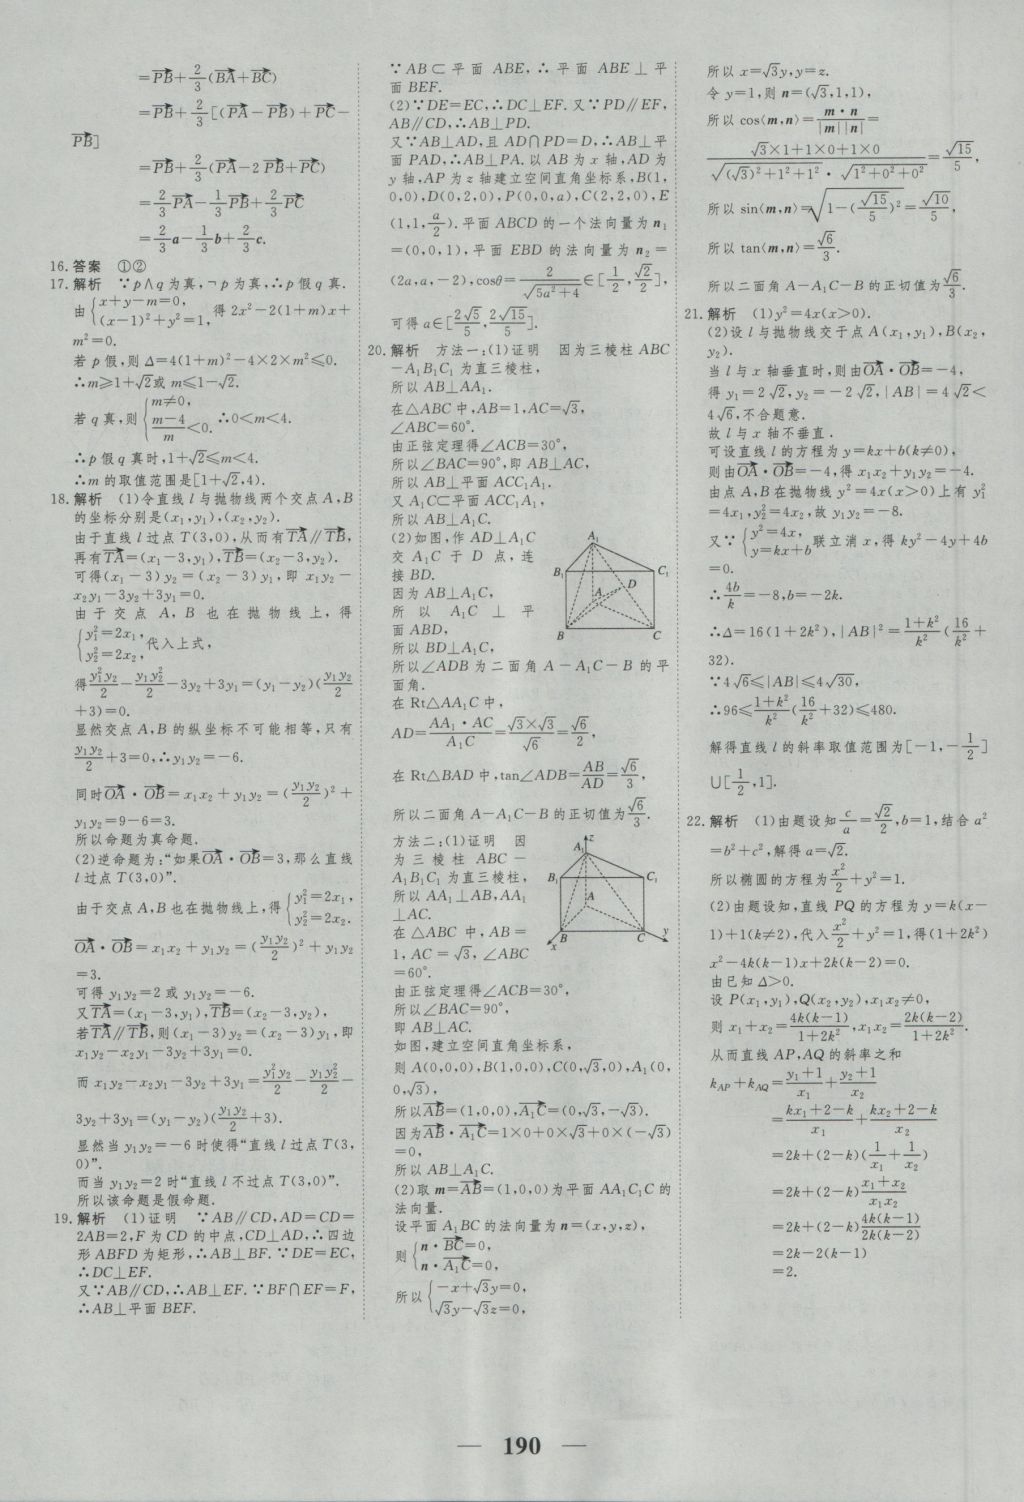 =PB+2/3(BA+BC)
=PB+2/3[(PA-PB)+PC-
PB]
=PB+2/3(PA-2PB+PC)
=2/3PA-1/3PB+2/3PC
=2/3a-1/3b+2/3c.
16.答案 ①②
17.解析 ∵p∧q为真,¬p为真,∴p假q真.
由{x+y-m=0,(x-1)²+y²=1,得2x²-2(1+m)x+
m²=0.
若p假,则Δ=4(1+m)²-4×2×m²≤0.
∴m≥1+√2或m≤1-√2.
若q真,则{m≠0,(m-4)/m<0.∴0<m<4.
∴p假q真时,1+√2≤m<4.
∴m的取值范围是[1+√2,4).
18.解析 (1)令直线l与抛物线两个交点A,B
的坐标分别是(x₁,y₁),(x₂,y₂).
由于直线l过点T(3,0),从而有TA∥TB,
再有TA=(x₁-3,y₁),TB=(x₂-3,y₂).
可得(x₁-3)y₂=(x₂-3)y₁,即x₁y₂-
x₂y₁-3y₂+3y₁=0.
由于交点A,B也在抛物线上,得
{y₁²=2x₁,y₂²=2x₂,代入上式,
得y₁²y₂/2-y₁y₂²/2-3y₂+3y₁=(y₁-y₂)(y₁y₂/2
+3)=0.
显然交点A,B的纵坐标不可能相等,只有
y₁y₂/2+3=0,∴y₁y₂=-6.
同时OA·OB=x₁x₂+y₁y₂=(y₁y₂/2)²+
y₁y₂=9-6=3.
所以命题为真命题.
(2)逆命题为:“如果OA·OB=3,那么直线
l过点T(3,0)”.
由于交点A,B也在抛物线上,得{y₁²=2x₁,y₂²=2x₂.
OA·OB=x₁x₂+y₁y₂=(y₁y₂/2)²+y₁y₂
=3.
可得y₁y₂=2或y₁y₂=-6.
又TA=(x₁-3,y₁),TB=(x₂-3,y₂),
若TA∥TB,则(x₁-3)y₂=(x₂-3)y₁,即
x₁y₂-x₂y₁-3y₂+3y₁=0.
而x₁y₂-x₂y₁-3y₂+3y₁=y₁²y₂/2-y₁y₂²/2-
3y₂+3y₁=(y₁-y₂)(y₁y₂/2+3).
显然当y₁y₂=-6时使得“直线l过点T(3,
0)”.
而当y₁y₂=2时“直线l不过点T(3,0)”.
所以该命题是假命题.
19.解析 (1)证明 ∵AB∥CD,AD=CD=
2AB=2,F为CD的中点,CD⊥AD,∴四边
形ABFD为矩形,∴AB⊥BF.∵DE=EC,
∴DC⊥EF.
又∵AB∥CD,∴AB⊥EF.∵BF∩EF=F,
∴AB⊥平面BEF.
∵AB⊂平面ABE,∴平面ABE⊥平
面BEF.
(2)∵DE=EC,∴DC⊥EF.又∵PD∥EF,
AB∥CD,∴AB⊥PD.
又∵AB⊥AD,且AD∩PD=D,∴AB⊥平
面PAD,∴AB⊥PA.以AB为x轴,AD为
y轴,AP为z轴建立空间直角坐标系,B(1,
0,0),D(0,2,0),P(0,0,a),C(2,2,0),E
(1,1,a/2).平面ABCD的一个法向量为n₁
=(0,0,1),平面EBD的法向量为n₂=
(2a,a,-2),cosθ=2/√(5a²+4)∈[1/2,√2/2],
可得a∈[2√5/5,2√15/5].
20.解析 方法一:(1)证明 因为三棱柱ABC
-A₁B₁C₁为直三棱柱,
所以AB⊥AA₁.
在△ABC中,AB=1,AC=√3,
∠ABC=60°.
由正弦定理得∠ACB=30°,
所以∠BAC=90°,即AB⊥AC,
所以AB⊥平面ACC₁A₁.
又A₁C⊂平面ACC₁A₁,
所以AB⊥A₁C.
(2)如图,作AD⊥A₁C
交A₁C于D点,连
接BD.
因为AB⊥A₁C,
所以A₁C⊥平
面ABD,
所以BD⊥A₁C,
所以∠ADB为二面角A-A₁C-B的平
面角.
在Rt△AA₁C中,
AD=AA₁·AC/A₁C=√3×√3/√6=√6/2,
在Rt△BAD中,tan∠ADB=AB/AD=√6/3,
所以二面角A-A₁C-B的正切值为√6/3.
方法二:(1)证明 因
为三棱柱ABC-
A₁B₁C₁为直三棱柱,
所以AA₁⊥AB,AA₁
⊥AC.
在△ABC中,AB=
1,AC=√3,∠ABC
=60°.
由正弦定理得∠ACB=30°,
所以∠BAC=90°,
即AB⊥AC.
如图,建立空间直角坐标系,
则A(0,0,0),B(1,0,0),C(0,√3,0),A₁(0,
0,√3),
所以AB=(1,0,0),A₁C=(0,√3,-√3).
因为AB·A₁C=1×0+0×√3+0×(-√3)
=0,
所以AB⊥A₁C.
(2)取m=AB=(1,0,0)为平面AA₁C₁C的
法向量.
设平面A₁BC的法向量为n=(x,y,z),
则{n·BC=0,n·A₁C=0,
所以{-x+√3y=0,√3y-√3z=0,
A₁
B₁
C₁
D
A
B
C
z
A₁
B₁
C₁
A
B
C
x
y
所以x=√3y,y=z.
令y=1,则n=(√3,1,1),
所以cos⟨m,n⟩=m·n/|m||n|=
(√3×1+1×0+1×0)/(√((√3)²+1²+1²)·√(1²+0²+0²))=√15/5,
所以sin⟨m,n⟩=√(1-(√15/5)²)=√10/5,
所以tan⟨m,n⟩=√6/3.
所以二面角A-A₁C-B的正切值为√6/3.
21.解析 (1)y²=4x(x>0).
(2)设l与抛物线交于点A(x₁,y₁),B(x₂,
y₂).
当l与x轴垂直时,则由OA·OB=-4,
得y₁=2√2,y₂=-2√2,|AB|=4√2<
4√6,不合题意.
故l与x轴不垂直.
可设直线l的方程为y=kx+b(k≠0),
则由OA·OB=-4,得x₁x₂+y₁y₂=-4.
由点A,B在抛物线y²=4x(x>0)上有y₁²
=4x₁,y₂²=4x₂,故y₁y₂=-8.
又∵{y²=4x,y=kx+b联立消x,得ky²-4y+4b
=0.
∴4b/k=-8,b=-2k.
∴Δ=16(1+2k²),|AB|²=(1+k²)/k²(16/k²+
32).
∵4√6≤|AB|≤4√30,
∴96≤(1+k²)/k²(16/k²+32)≤480.
解得直线l的斜率取值范围为[-1,-1/2]
∪[1/2,1].
22.解析 (1)由题设知c/a=√2/2,b=1,结合a²
=b²+c²,解得a=√2.
所以椭圆的方程为x²/2+y²=1.
(2)由题设知,直线PQ的方程为y=k(x-
1)+1(k≠2),代入x²/2+y²=1,得(1+2k²)
x²-4k(k-1)x+2k(k-2)=0.
由已知Δ>0.
设P(x₁,y₁),Q(x₂,y₂),x₁x₂≠0,
则x₁+x₂=4k(k-1)/(1+2k²),x₁x₂=2k(k-2)/(1+2k²).
从而直线AP,AQ的斜率之和
k_AP+k_AQ=(y₁+1)/x₁+(y₂+1)/x₂
=(kx₁+2-k)/x₁+(kx₂+2-k)/x₂
=2k+(2-k)(1/x₁+1/x₂)
=2k+(2-k)(x₁+x₂)/(x₁x₂)
=2k+(2-k)4k(k-1)/2k(k-2)
=2k-2(k-1)
=2.
— 190 —